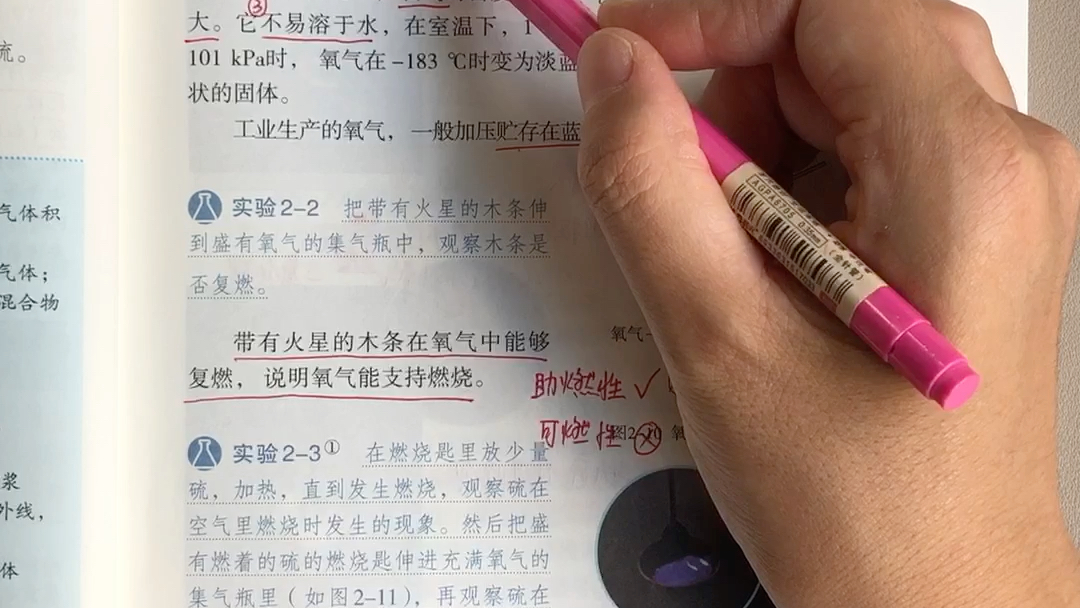 ③
大。它不易溶于水，在室温下，1
流。
101 kPa时， 氧气在-183 ℃时变为淡蓝
状的固体。
工业生产的氧气， 一般加压贮存在蓝
气体积
实验2-2 把带有火星的木条伸
到盛有氧气的集气瓶中，观察木条是
气体；
否复燃。
混合物
带有火星的木条在氧气中能够
氧气
复燃， 说明氧气能支持燃烧。
助燃性 ✓
可燃性
图2-10 氧
实验2-3① 在燃烧匙里放少量
浆
硫，加热，直到发生燃烧，观察硫在
外线，
空气里燃烧时发生的现象。然后把盛
有燃着的硫的燃烧匙伸进充满氧气的
体
集气瓶里（如图2-11），再观察硫在
AGPA8705 0.35mm
（全针管）